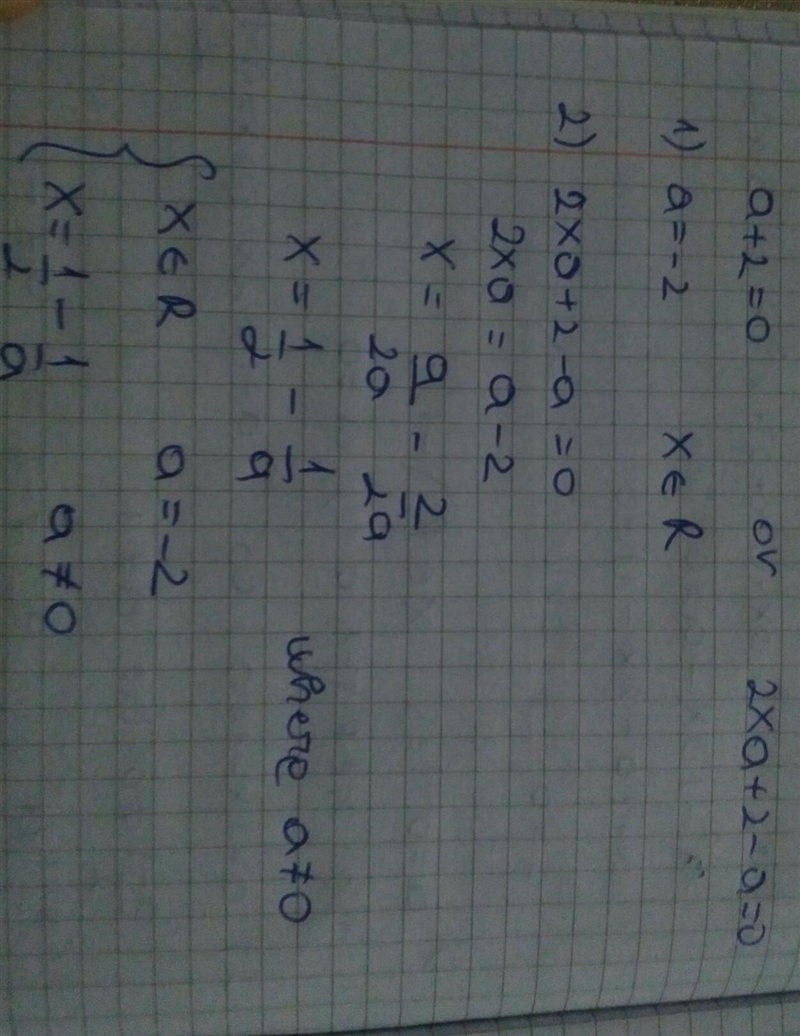 a+2=0 or 2xa+2-a=0
1) a=-2 x∈R
2) 2xa+2-a=0
2xa=a-2
x = a/2a - 2/2a
x = 1/2 - 1/a where a≠0
{ x∈R a=-2
x = 1/2 - 1/a a≠0